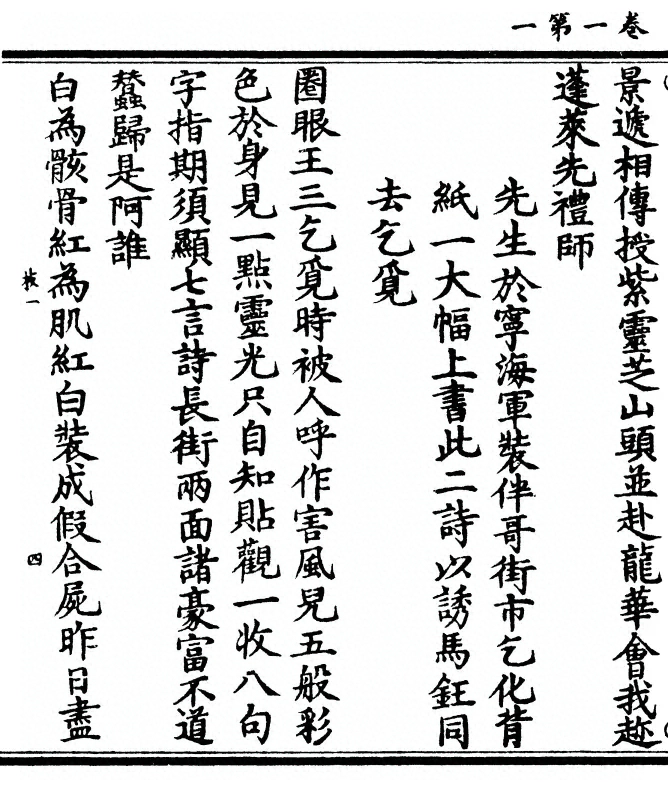 卷一第一
景遞相傳授紫靈芝山頭並赴龍華會我趂
蓬萊先禮師
先生於寧海軍裝伴哥街市乞化背
紙一大幅上書此二詩以誘馬鈺同
去乞覓
圈眼王三乞覓時被人呼作害風兒五般彩
色於身見一點靈光只自知貼觀一收八句
字指期須顯七言詩長街兩面諸豪富不道
蠶歸是阿誰
枝一
四
白為骸骨紅為肌紅白裝成假合屍昨日盡